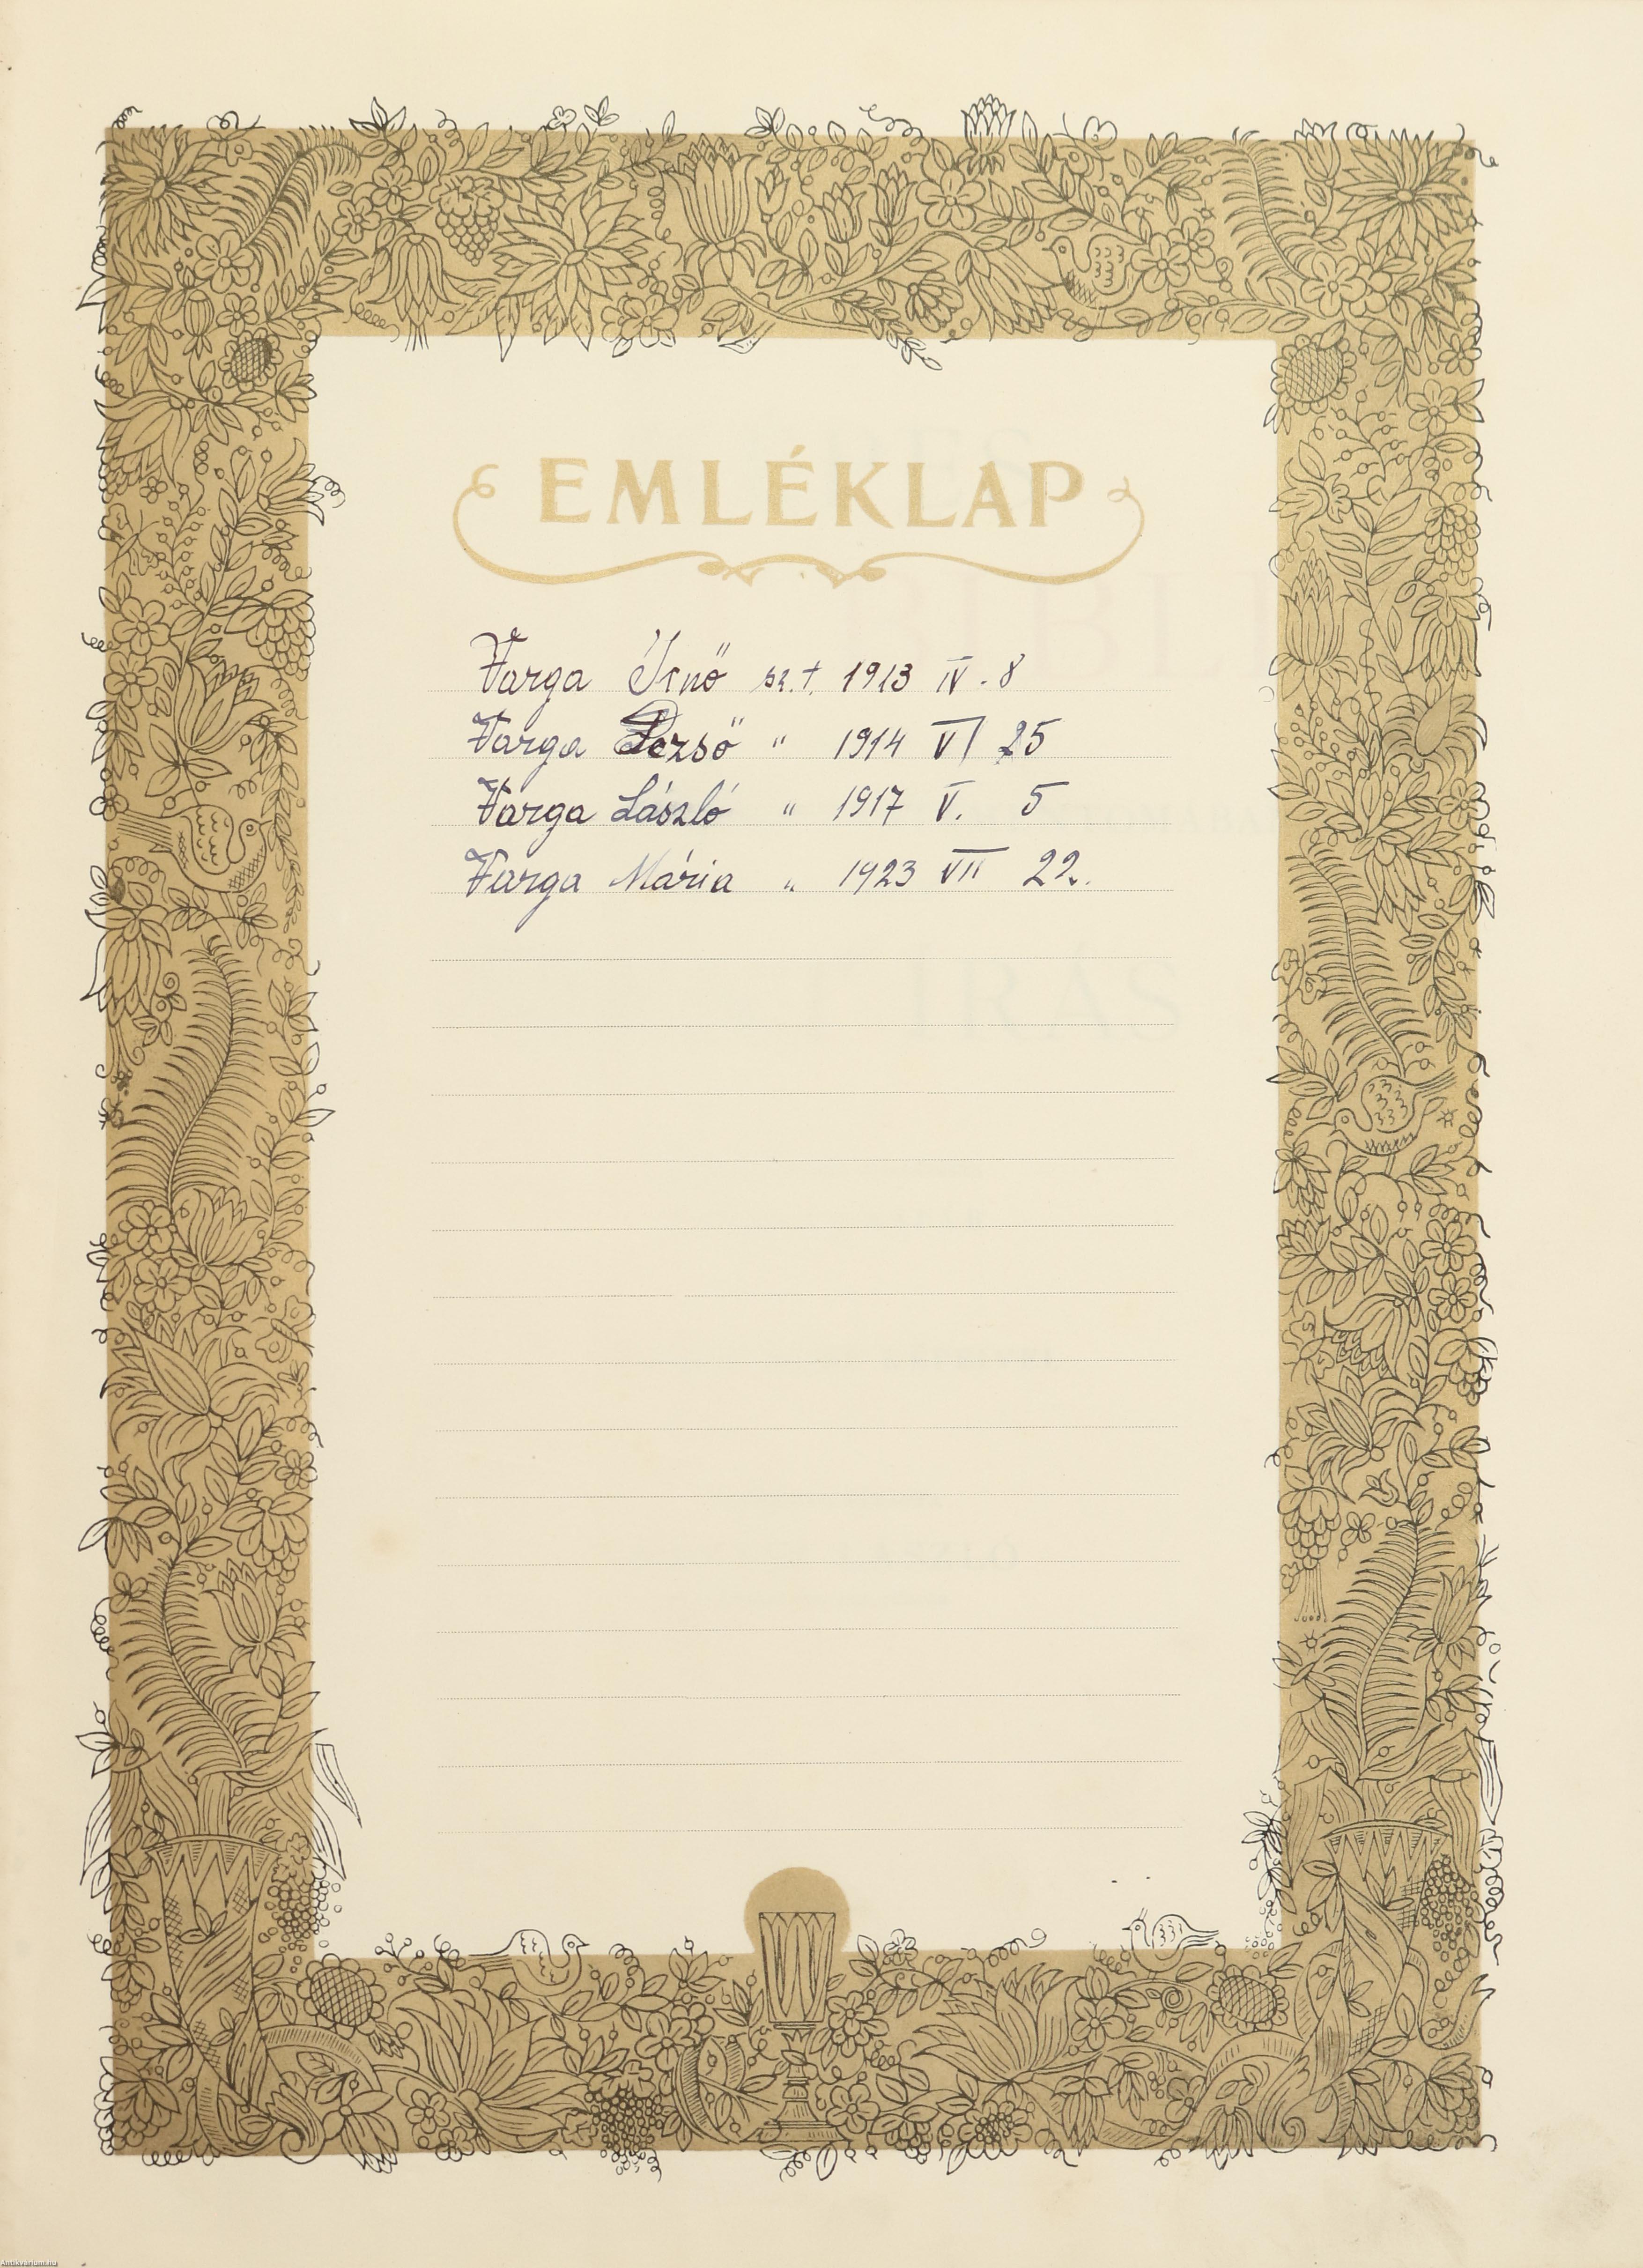 EMLÉKLAP
Varga Jenő sz.t. 1913 IV. 8
Varga Dezső " 1914 VI 25
Varga László " 1917 V. 5
Varga Mária " 1923 VII 22.
Antikvarium.hu